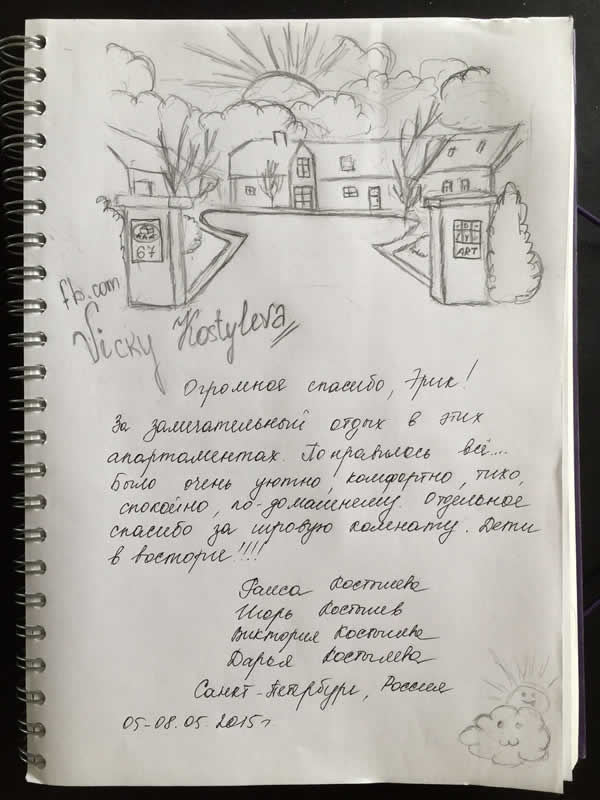 67
ART
fb.com
Vicky Kostyleva
Огромное спасибо, Эрик!
За замечательный отдых в этих
апартаментах. Понравилось всё....
Было очень уютно, комфортно, тихо,
спокойно, по-домашнему. Отдельное
спасибо за игровую комнату. Дети
в восторге!!!!
Раиса Костылева
Игорь Костылев
Виктория Костылева
Дарья Костылева
Санкт-Петербург, Россия
05-08.05.2015г